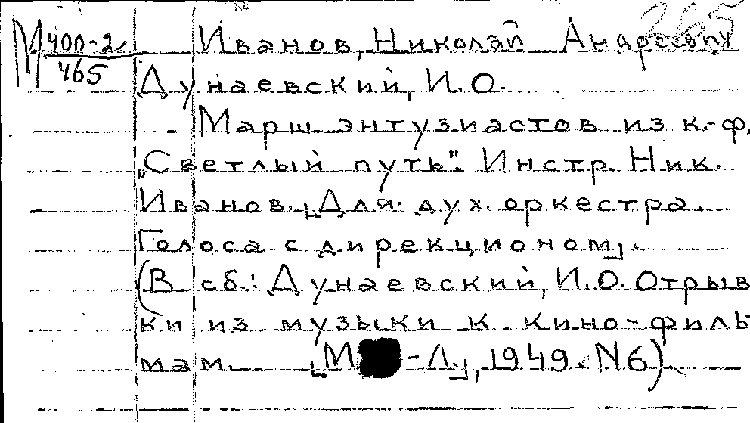 М 400-2 Иванов, Николай Андреевич
465 Дунаевский, И.О.
Марш энтузиастов из к.-ф.
„Светлый путь". Инстр. Ник.
Иванов. [Для дух. оркестра.
Голоса с дирекционом].
(В сб.: Дунаевский, И.О. Отрыв
ки из музыки к кино-филь
мам. [М -Л], 1949. №6)